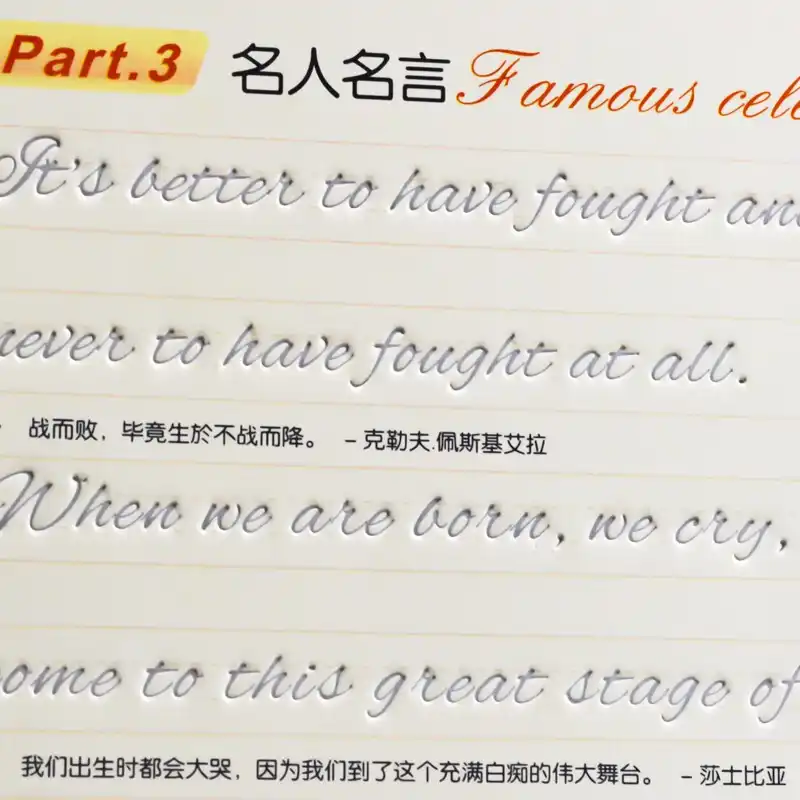 Part.3 名人名言 Famous cele
It's better to have fought and
never to have fought at all.
战而败，毕竟生於不战而降。 –克勒夫.佩斯基艾拉
When we are born, we cry,
come to this great stage of
我们出生时都会大哭，因为我们到了这个充满白痴的伟大舞台。 –莎士比亚